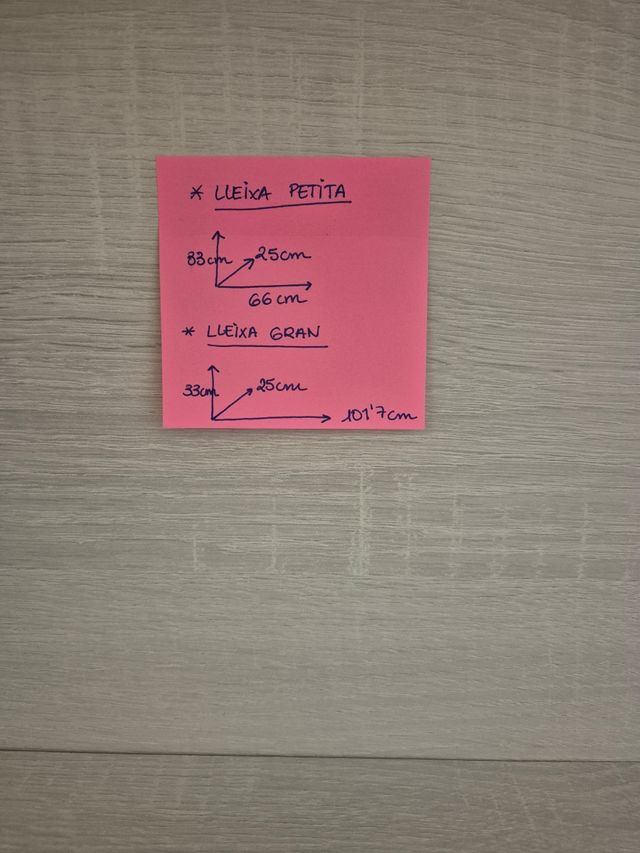 * LLEIXA PETITA
33cm 25cm
66 cm
* LLEIXA GRAN
33cm 25cm
101'7cm